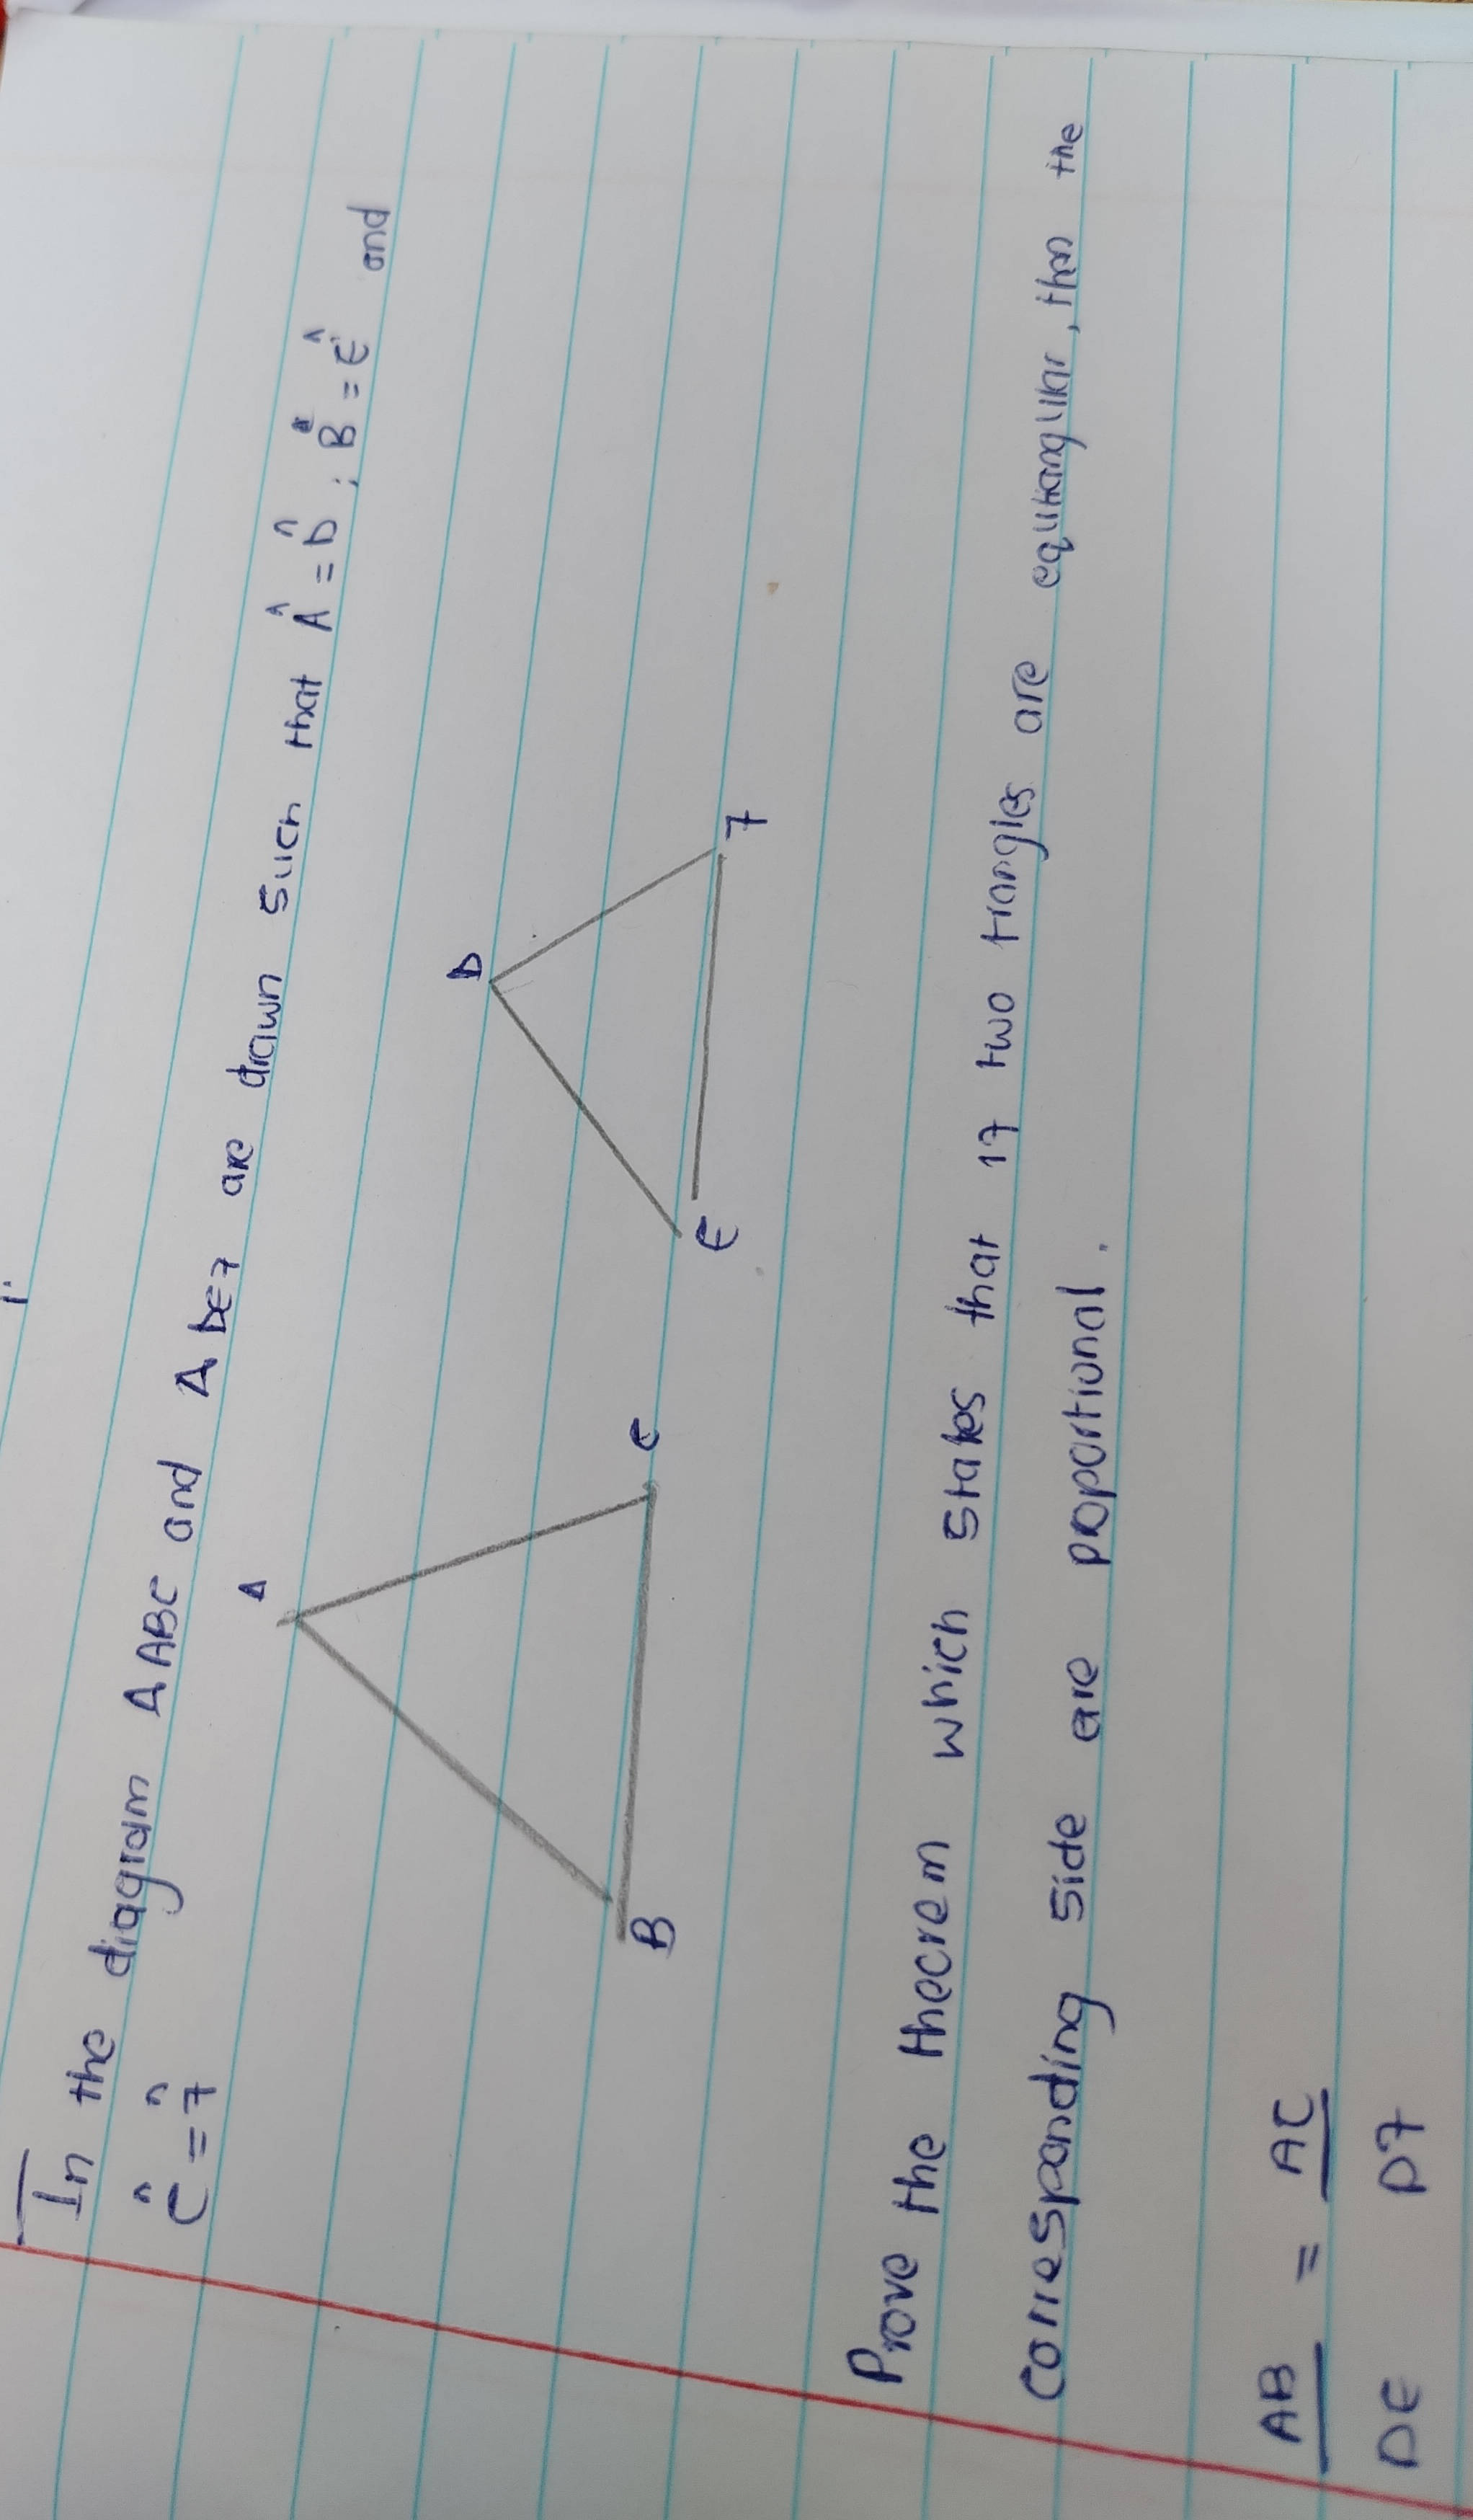 In the diagram ΔABC and ΔDEF are drawn such that Â = D̂ ; B̂ = Ê and
Ĉ = F̂
A
D
B
C
E
F
Prove the theorem which states that if two triangles are equiangular, then the
corresponding side are poportional.
AB = AC
DE DF